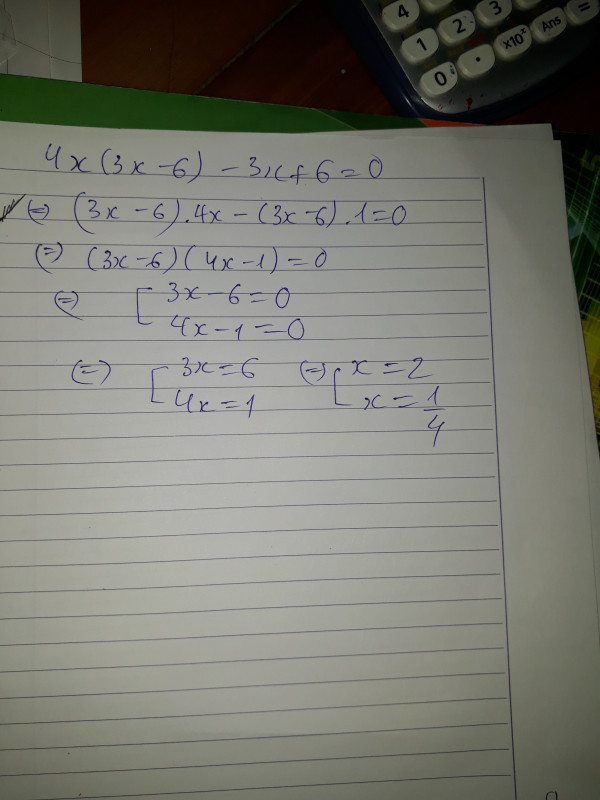 4
1 2 3
0 . x10ˣ Ans =
4x(3x-6) -3x+6=0
(=) (3x-6).4x-(3x-6).1=0
(=) (3x-6)(4x-1)=0
(=) [ 3x-6=0
4x-1=0
(=) [ 3x=6 (=) [ x=2
4x=1 x=1/4